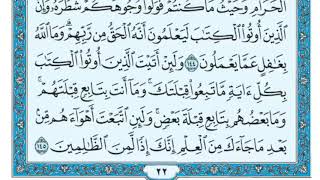 الْحَرَامِ وَحَيْثُ مَا كُنتُمْ فَوَلُّوا۟ وُجُوهَكُمْ شَطْرَهُۥ وَإِنَّ
الَّذِينَ أُوتُوا۟ الْكِتَٰبَ لَيَعْلَمُونَ أَنَّهُ الْحَقُّ مِن رَّبِّهِمْ وَمَا اللَّهُ
بِغَٰفِلٍ عَمَّا يَعْمَلُونَ ١٤٤ وَلَئِنْ أَتَيْتَ الَّذِينَ أُوتُوا۟ الْكِتَٰبَ
بِكُلِّ ءَايَةٍ مَّا تَبِعُوا۟ قِبْلَتَكَ وَمَا أَنتَ بِتَابِعٍ قِبْلَتَهُمْ
وَمَا بَعْضُهُم بِتَابِعٍ قِبْلَةَ بَعْضٍ وَلَئِنِ اتَّبَعْتَ أَهْوَاءَهُم مِّن
بَعْدِ مَا جَاءَكَ مِنَ الْعِلْمِ إِنَّكَ إِذًا لَّمِنَ الظَّٰلِمِينَ ١٤٥
٢٢